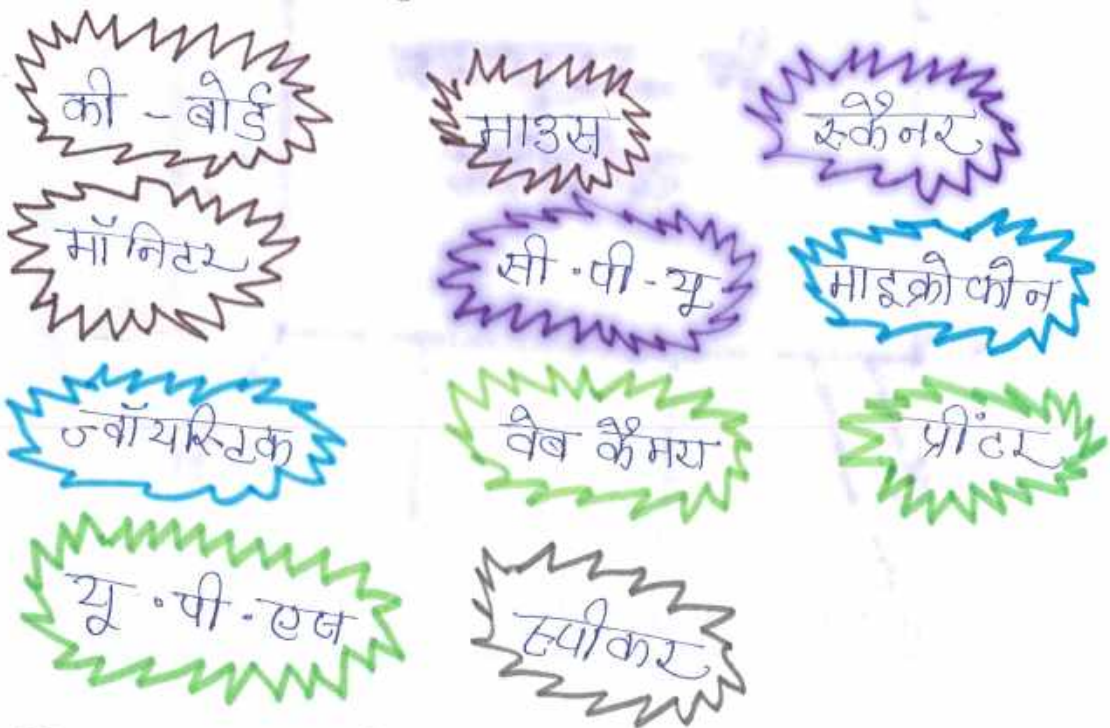 की - बोर्ड
माउस
स्कैनर
मॉनिटर
सी . पी - यू
माइक्रोफोन
ज्वॉयस्टिक
वेब कैमरा
प्रींटर
यू . पी . एस
स्पीकर